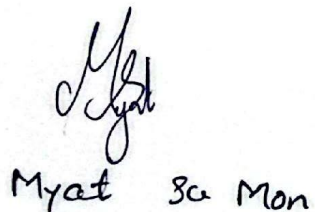 Myat
Myat Su Mon